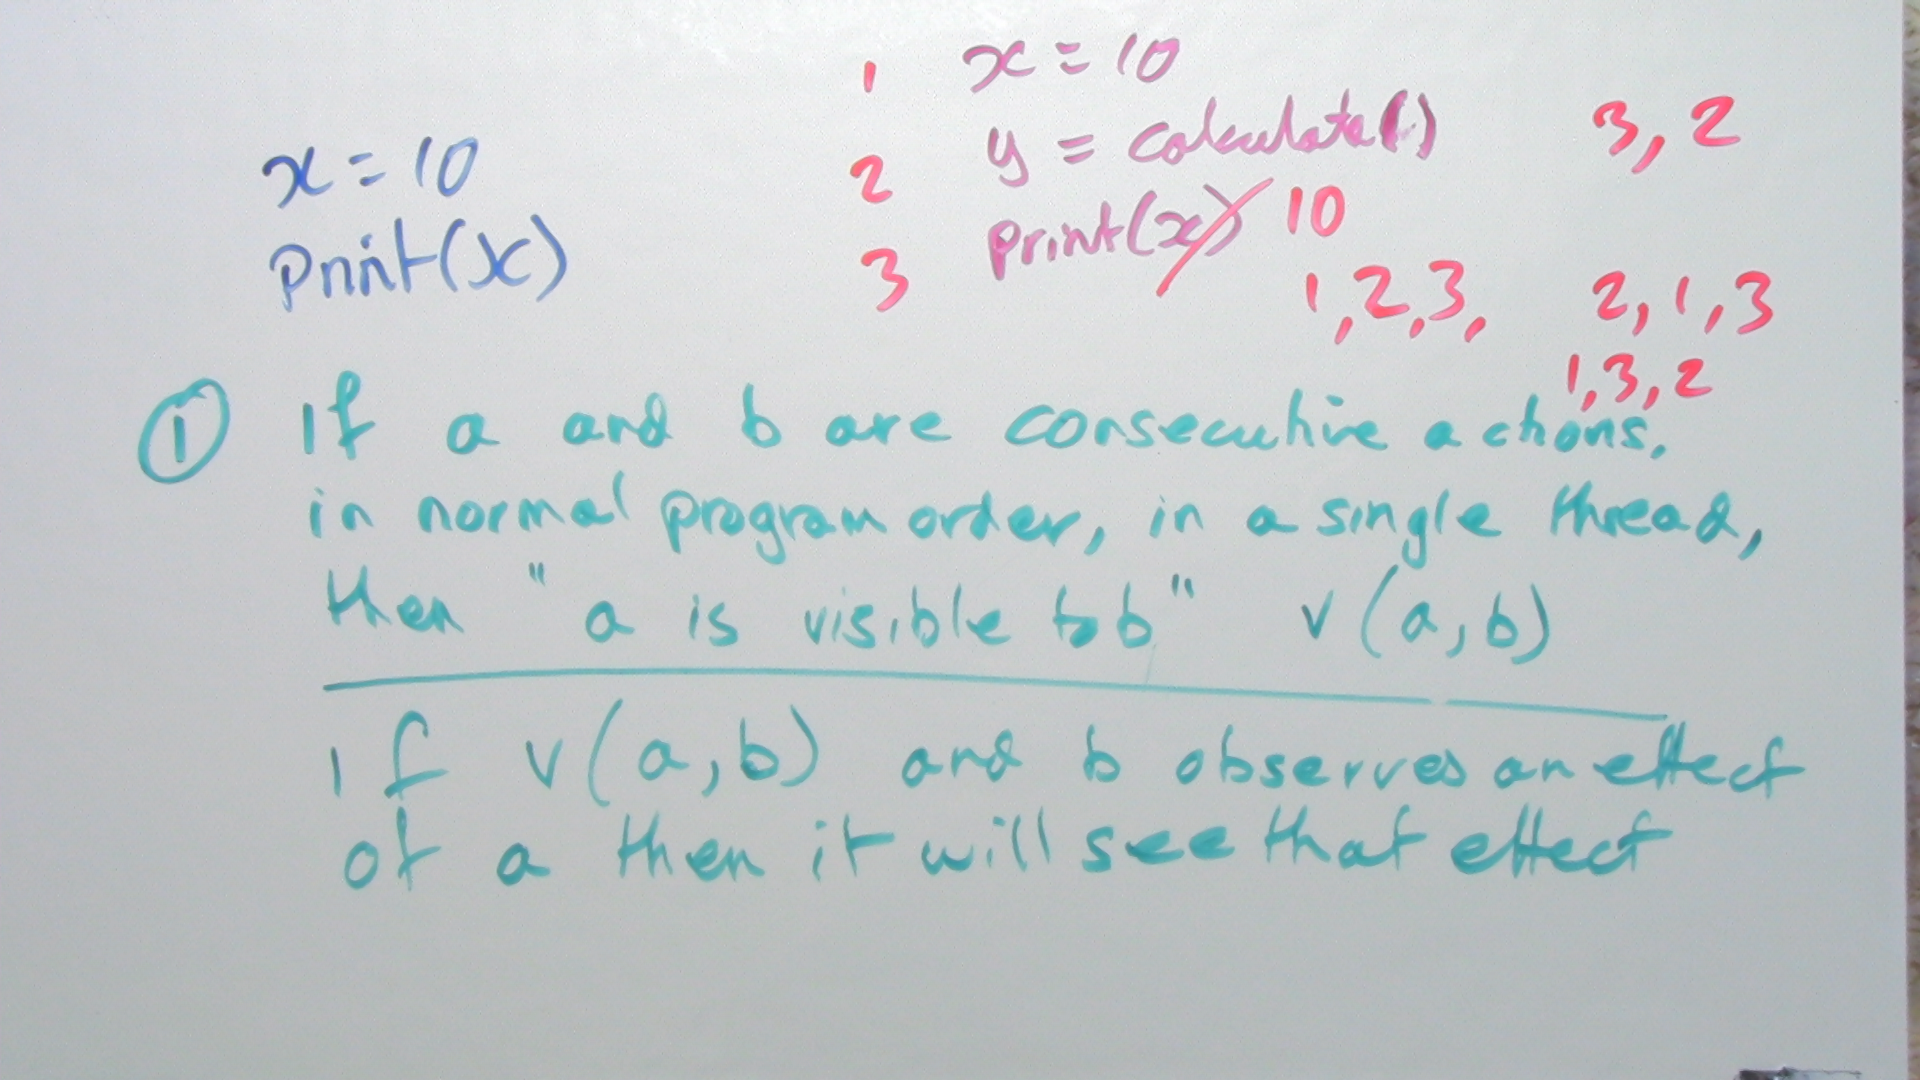 x = 10
print(x)
1 x = 10
2 y = calculate()
3 print(x) 10
3, 2
1,2,3, 2,1,3
1,3,2
① If a and b are consecutive actions,
in normal program order, in a single thread,
then "a is visible to b" v(a,b)
if v(a,b) and b observes an effect
of a then it will see that effect